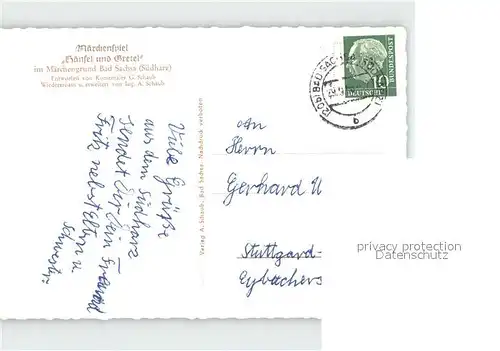 Märchenspiel
„Hänsel und Gretel"
im Märchengrund Bad Sachsa (Südharz)
Entworfen von Kunstmaler G. Schaub
Wiedererbaut u. erweitert von Ing. A. Schaub
Viele Grüße
aus dem Südharz
sendet Dir Dein Freund
Fritz nebst Eltern u.
Schwester.
Verlag A. Schaub, Bad Sachsa. Nachdruck verboten
BAD SACHSA
b
DEUTSCHE
BUNDESPOST
10
An
Herrn
Gerhard U
Stuttgard-
privacy protection
Datenschutz